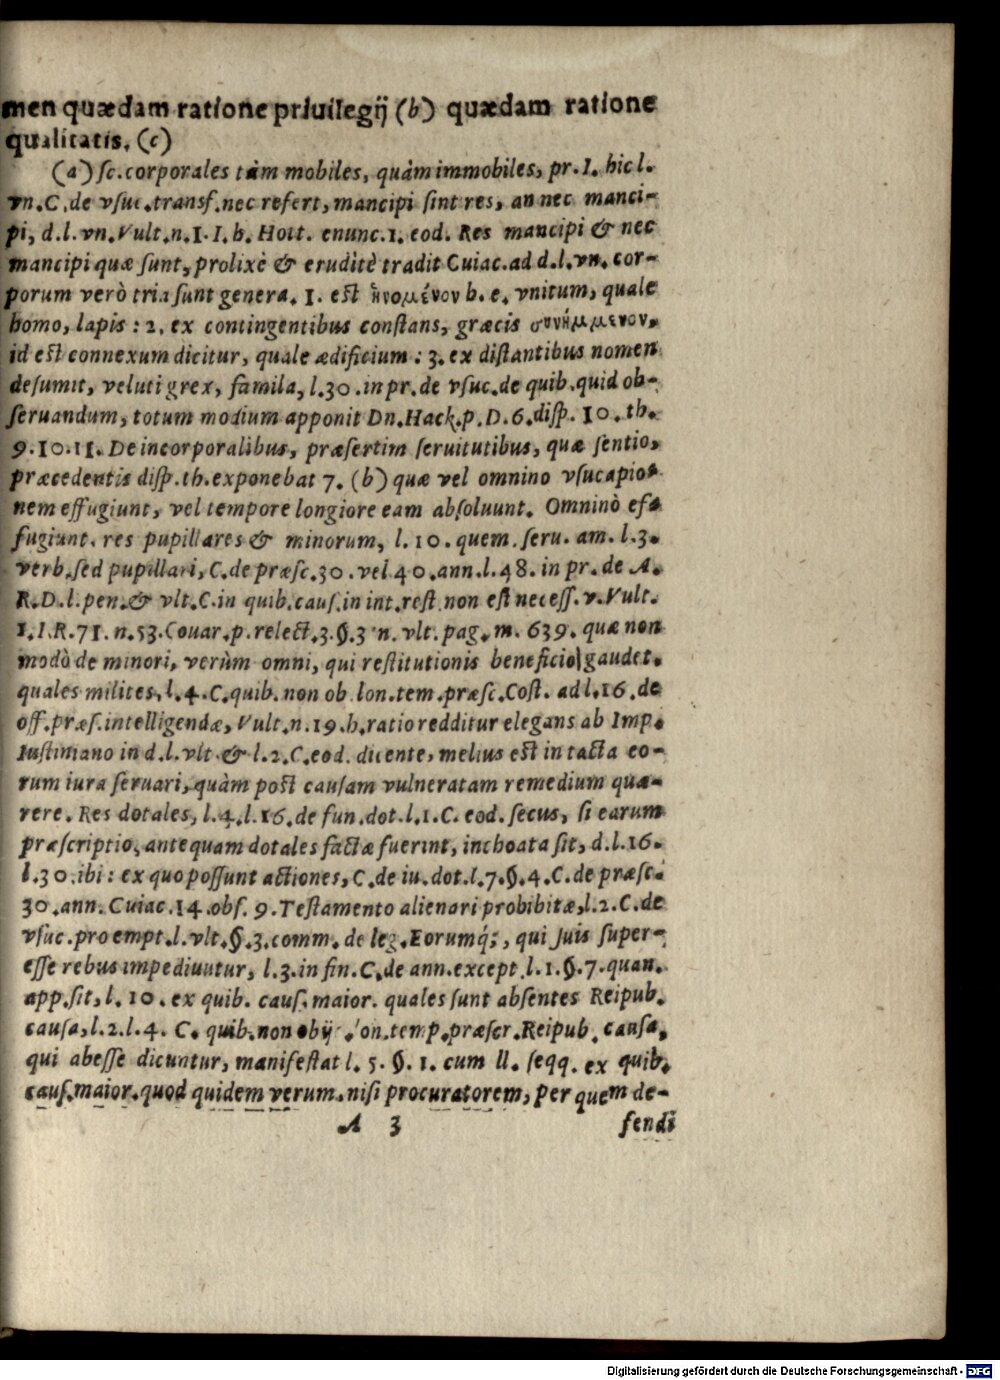 men quædam ratione priuilegij (b) quædam ratione
qualitatis. (c)
(a) sc. corporales tàm mobiles, quàm immobiles, pr. I. hic l.
vn. C. de vsuc. transf. nec refert, mancipi sint res, an nec manci-
pi, d. l. vn. Vult. n. 1. I. h. Hott. enunc. 1. eod. Res mancipi & nec
mancipi quæ sunt, prolixè & eruditè tradit Cuiac. ad d. l. vn. cor-
porum verò tria sunt genera. 1. est ἡνομένον h. e. vnitum, quale
homo, lapis : 2. ex contingentibus constans, græcis συνήμμενον,
id est connexum dicitur, quale ædificium : 3. ex distantibus nomen
desumit, veluti grex, famila, l. 30. in pr. de vsuc. de quib. quid ob-
seruandum, totum modium apponit Dn. Hack. p. D. 6. disp. 10. th.
9. 10. 11. De incorporalibus, præsertim seruitutibus, quæ sentio,
præcedentis disp. th. exponebat 7. (b) quæ vel omnino vsucapio-
nem effugiunt, vel tempore longiore eam absoluunt. Omninò ef-
fugiunt. res pupillares & minorum, l. 10. quem. seru. am. l. 3.
verb. sed pupillari, C. de præsc. 30. vel 40. ann. l. 48. in pr. de A.
R. D. l. pen. & vlt. C. in quib. caus. in int. rest. non est necess. v. Vult.
1. I. R. 71. n. 53. Couar. p. relect. 3. §. 3 n. vlt. pag. m. 639. quæ non
modò de minori, verùm omni, qui restitutionis beneficio gaudet.
quales milites, l. 4. C. quib. non ob lon. tem. præsc. Cost. ad l. 16. de
off. præs. intelligendæ, Vult. n. 19. h. ratio redditur elegans ab Imp.
Iustiniano in d. l. vlt. & l. 2. C. eod. dicente, melius est intacta eo-
rum iura seruari, quàm post causam vulneratam remedium quæ-
rere. Res dotales, l. 4. l. 16. de fun. dot. l. 1. C. eod. secus, si earum
præscriptio, antequam dotales factæ fuerint, inchoata sit, d. l. 16.
l. 30. ibi : ex quo possunt actiones, C. de iu. dot. l. 7. §. 4. C. de præsc.
30. ann. Cuiac. 14. obs. 9. Testamento alienari prohibitæ, l. 2. C. de
vsuc. pro empt. l. vlt. §. 3. comm. de leg. Eorumq́;, qui Juis super-
esse rebus impediuutur, l. 3. in fin. C. de ann. except. l. 1. §. 7. quan.
app. sit, l. 10. ex quib. caus. maior. quales sunt absentes Reipub.
causa, l. 2. l. 4. C. quib. non obij lon. temp. præscr. Reipub. causa,
qui abesse dicuntur, manifestat l. 5. §. 1. cum ll. seqq. ex quib.
caus. maior. quod quidem verum. nisi procuratorem, per quem de-
A 3 fendi
Digitalisierung gefördert durch die Deutsche Forschungsgemeinschaft - DFG